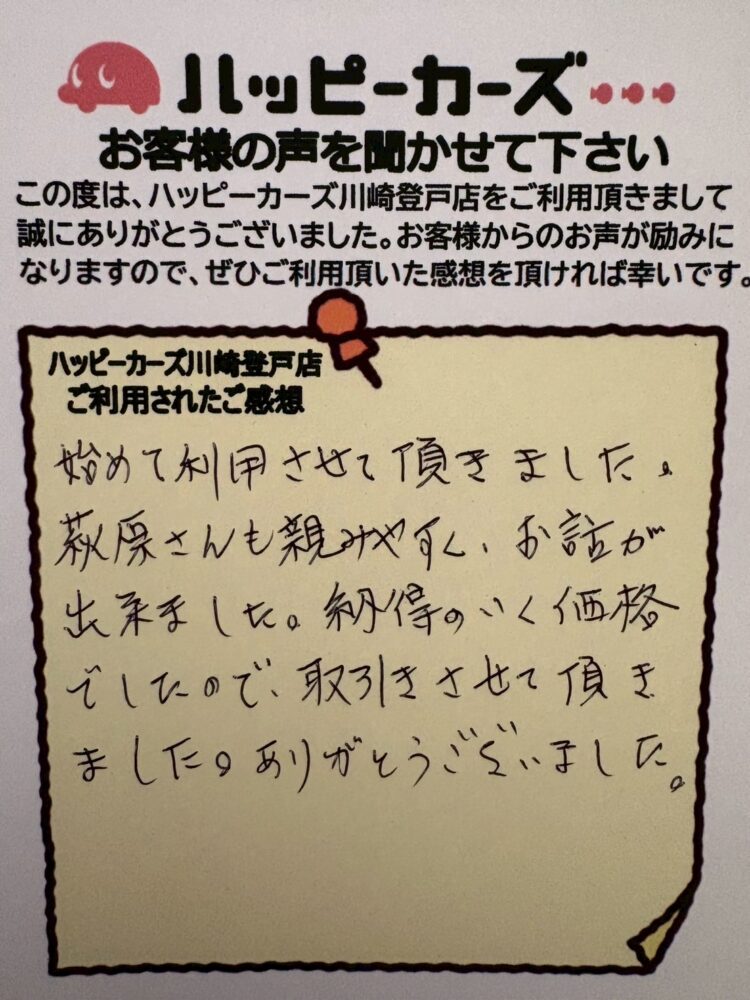 ハッピーカーズ
お客様の声を聞かせて下さい
この度は、ハッピーカーズ川崎登戸店をご利用頂きまして
誠にありがとうございました。お客様からのお声が励みに
なりますので、ぜひご利用頂いた感想を頂ければ幸いです。
ハッピーカーズ川崎登戸店
ご利用されたご感想
始めて利用させて頂きました。
萩原さんも親みやすく、お話が
出来ました。納得のいく価格
でしたので、取引きさせて頂き
ました。ありがとうございました。